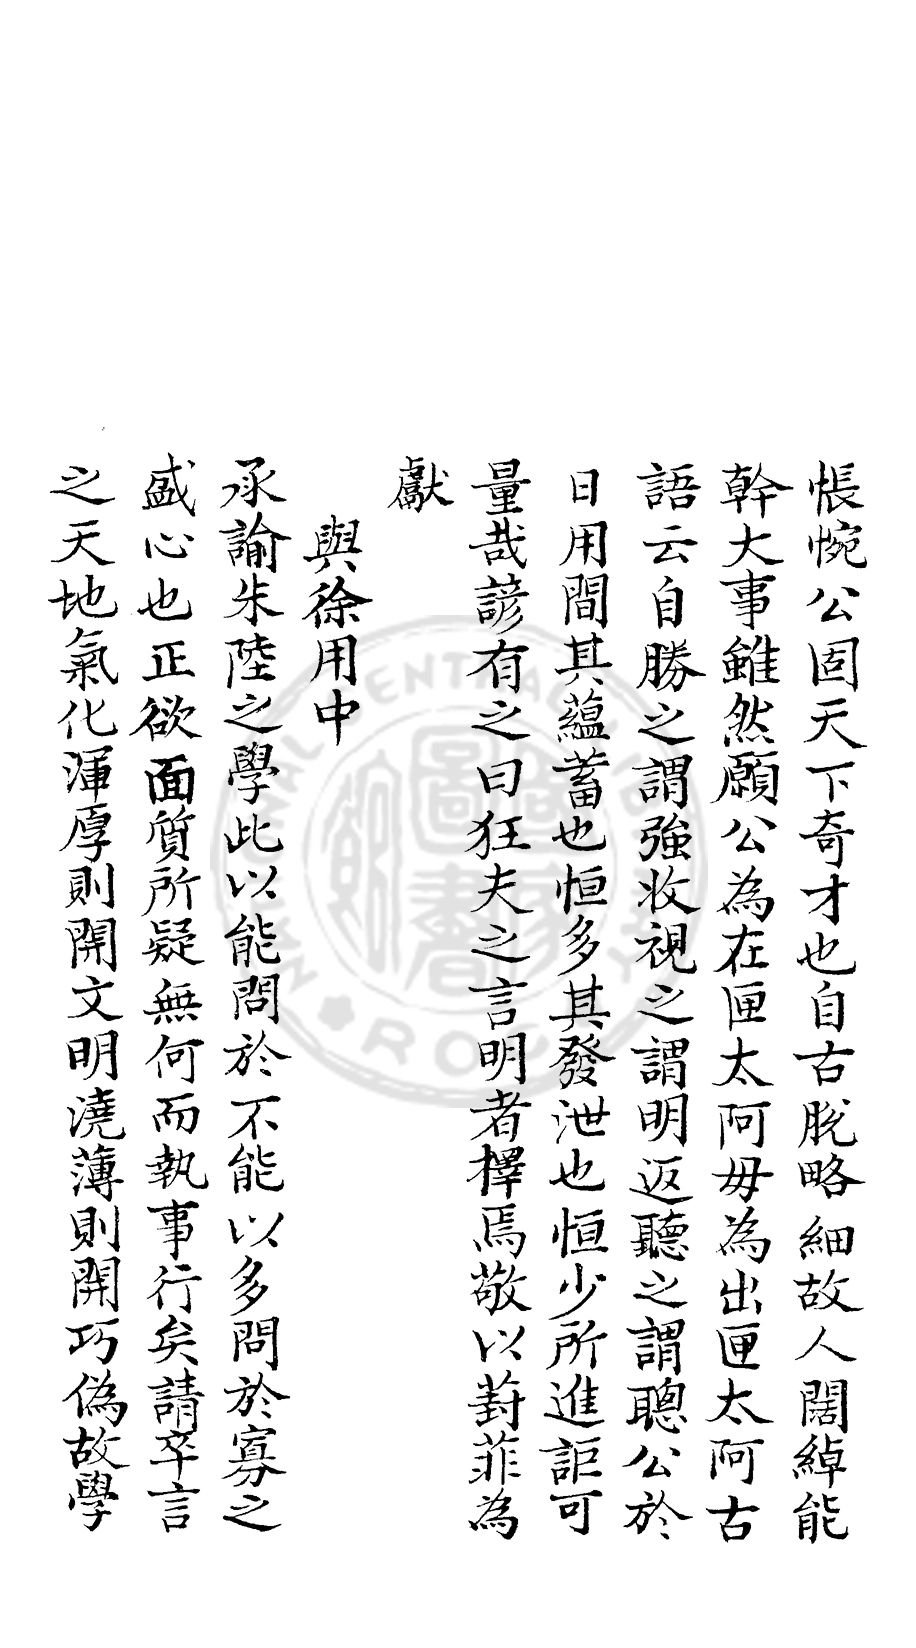 悵惋公固天下奇才也自古脫略細故人闊綽能
幹大事雖然願公為在匣太阿毋為出匣太阿古
語云自勝之謂強收視之謂明返聽之謂聰公於
日用間其蘊蓄也恒多其發泄也恒少所進詎可
量哉諺有之曰狂夫之言明者擇焉敬以葑菲為
獻
與徐用中
承諭朱陸之學此以能問於不能以多問於寡之
盛心也正欲面質所疑無何而執事行矣請卒言
之天地氣化渾厚則開文明澆薄則開巧偽故學
NATIONAL CENTRAL LIBRARY
國家圖書館